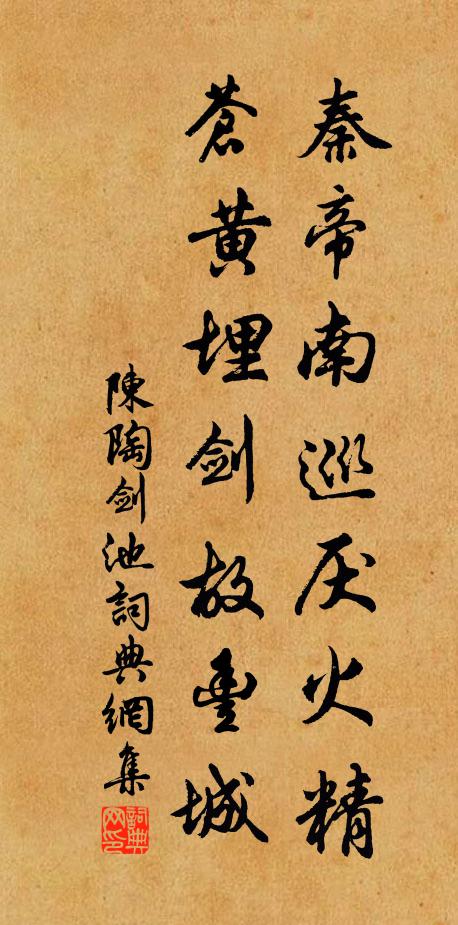 秦帝南巡厌火精
蒼黄埋剑故豊城
陳陶剑池詞典網集
詞典网印